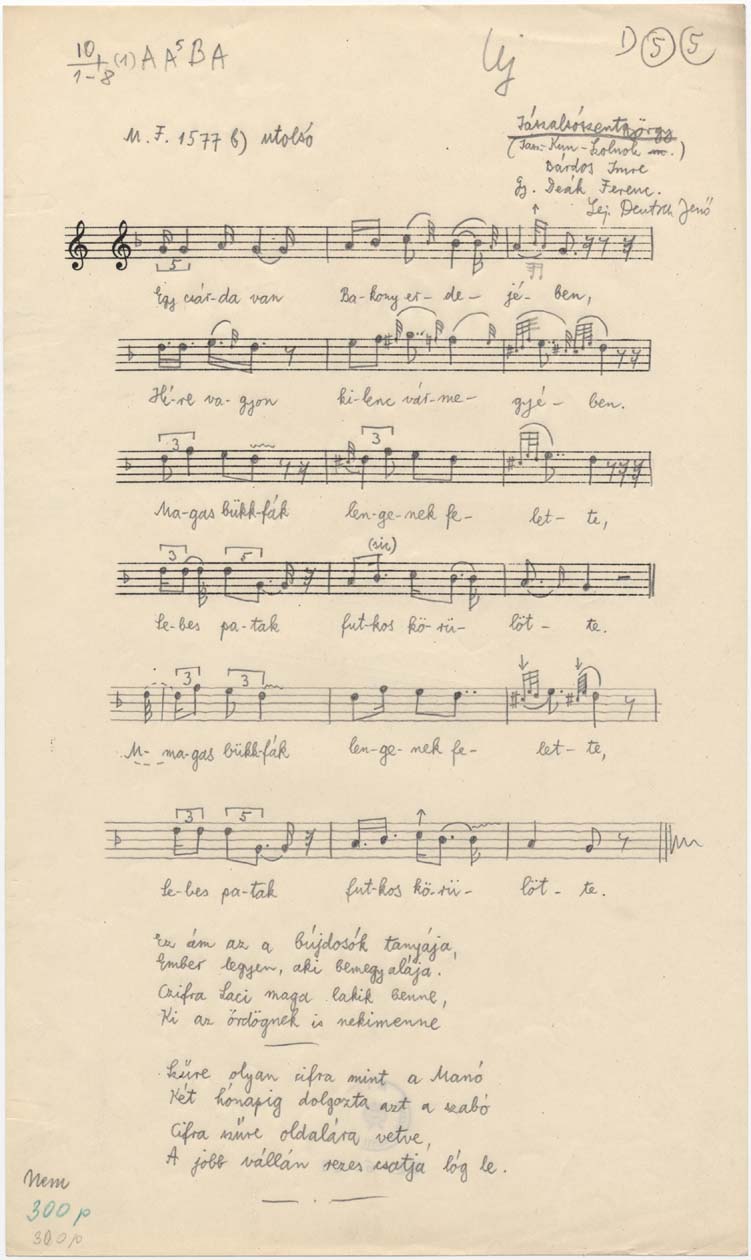 10
1-8 (1) A A⁵ B A
Uj
D 5 5
M. F. 1577 b) utolsó
Jászalsószentgyörgy
(Jász-Kun-Szolnok m.)
Bárdos Imre
Gy. Deák Ferenc.
Lej. Deutsch Jenő
5
Egy csár-da van Ba-kony er-de- jé- ben,
Hí-re va-gyon ki-lenc vár-me- gyé- ben.
3 3
Ma-gas bükk-fák len-ge-nek fe- let- te,
3 5 (sic)
Se-bes pa-tak fut-kos kö-rü- löt- te.
3 3
M- ma-gas bükk-fák len-ge-nek fe- let- te,
3 5
Se-bes pa-tak fut-kos kö-rü- löt- te.
Ez ám az a bújdosók tanyája,
Ember legyen, aki bemegy alája.
Czifra Laci maga lakik benne,
Ki az ördögnek is nekimenne
Szűre olyan cifra mint a Manó
Két hónapig dolgozta azt a szabó
Cifra szűre oldalára vetve,
A jobb vállán rezes csatja lóg le.
Nem
300 p
300 p